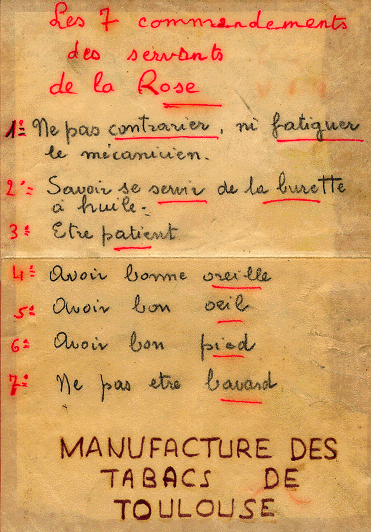 Les 7 commendements
des servants
de la Rose
1º Ne pas contrarier, ni fatiguer
le mécanicien.
2º= Savoir se servir de la burette
à huile.
3º Etre patient
4º Avoir bonne oreille
5º Avoir bon oeil
6º Avoir bon pied
7º Ne pas etre bavard
MANUFACTURE DES
TABACS DE
TOULOUSE